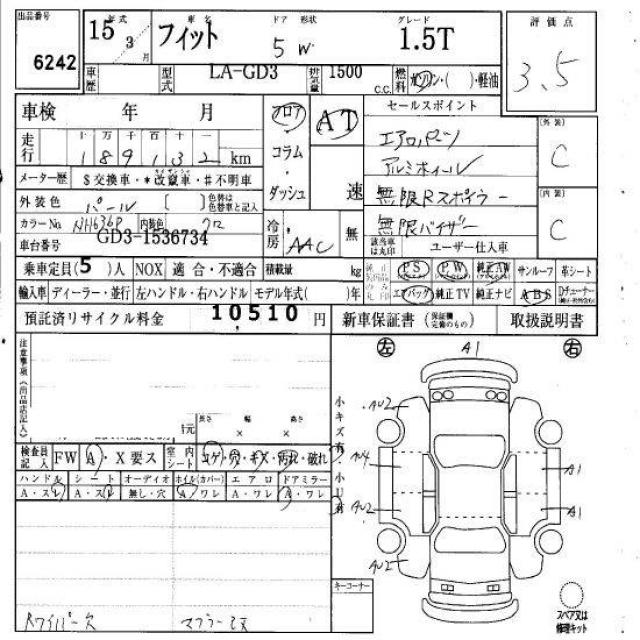 出品番号 6242
15年式 3月 車名 フィット ドア 形状 5W グレード 1.5T 評価点 3.5
車歴 型式 LA-GD3 排気量 1500 c.c. 燃料 ガソリン・( )・軽油
車検 年 月 フロア・コラム・ダッシュ AT 速 セールスポイント
走行 十万千百十一 189132 km
エアロパーツ
アルミホイール
無限Rスポイラー
無限バイザー
外装 C
内装 C
メーター歴 $交換車・*改竄車・#不明車
外装色 パール [ ] 色替は色替色と記入
カラーNo. NH636P 内装色 クロ 冷房 AAC 無 該当車は丸印 ユーザー仕入車
車台番号 GD3-1536734
乗車定員(5)人 NOX 適合・不適合 積載量 kg PS PW 純正AW サンルーフ 革シート
輸入車 ディーラー・並行 左ハンドル・右ハンドル モデル年式( )年 エアバッグ 純正TV 純正ナビ ABS Dチューナー
預託済リサイクル料金 10510円 新車保証書 (保証欄完備のもの) 取扱説明書
注意事項(出品店記入)
長さ 幅 高さ
× ×
検査員記入 FW A・X要ス 室内シート コゲ・穴・キズ・汚れ・破れ
ハンドル シート オーディオ ホイル(カバー) エアロ ドアミラー
A・スレ A・スレ 無し・穴 A・ワレ A・ワレ A・ワレ
Rワイパー欠
左 A1 右
小キズ有・小U有
AU2
AU4 A1
AU2 A1
AU2
キーコーナー
スペア又は修理キット